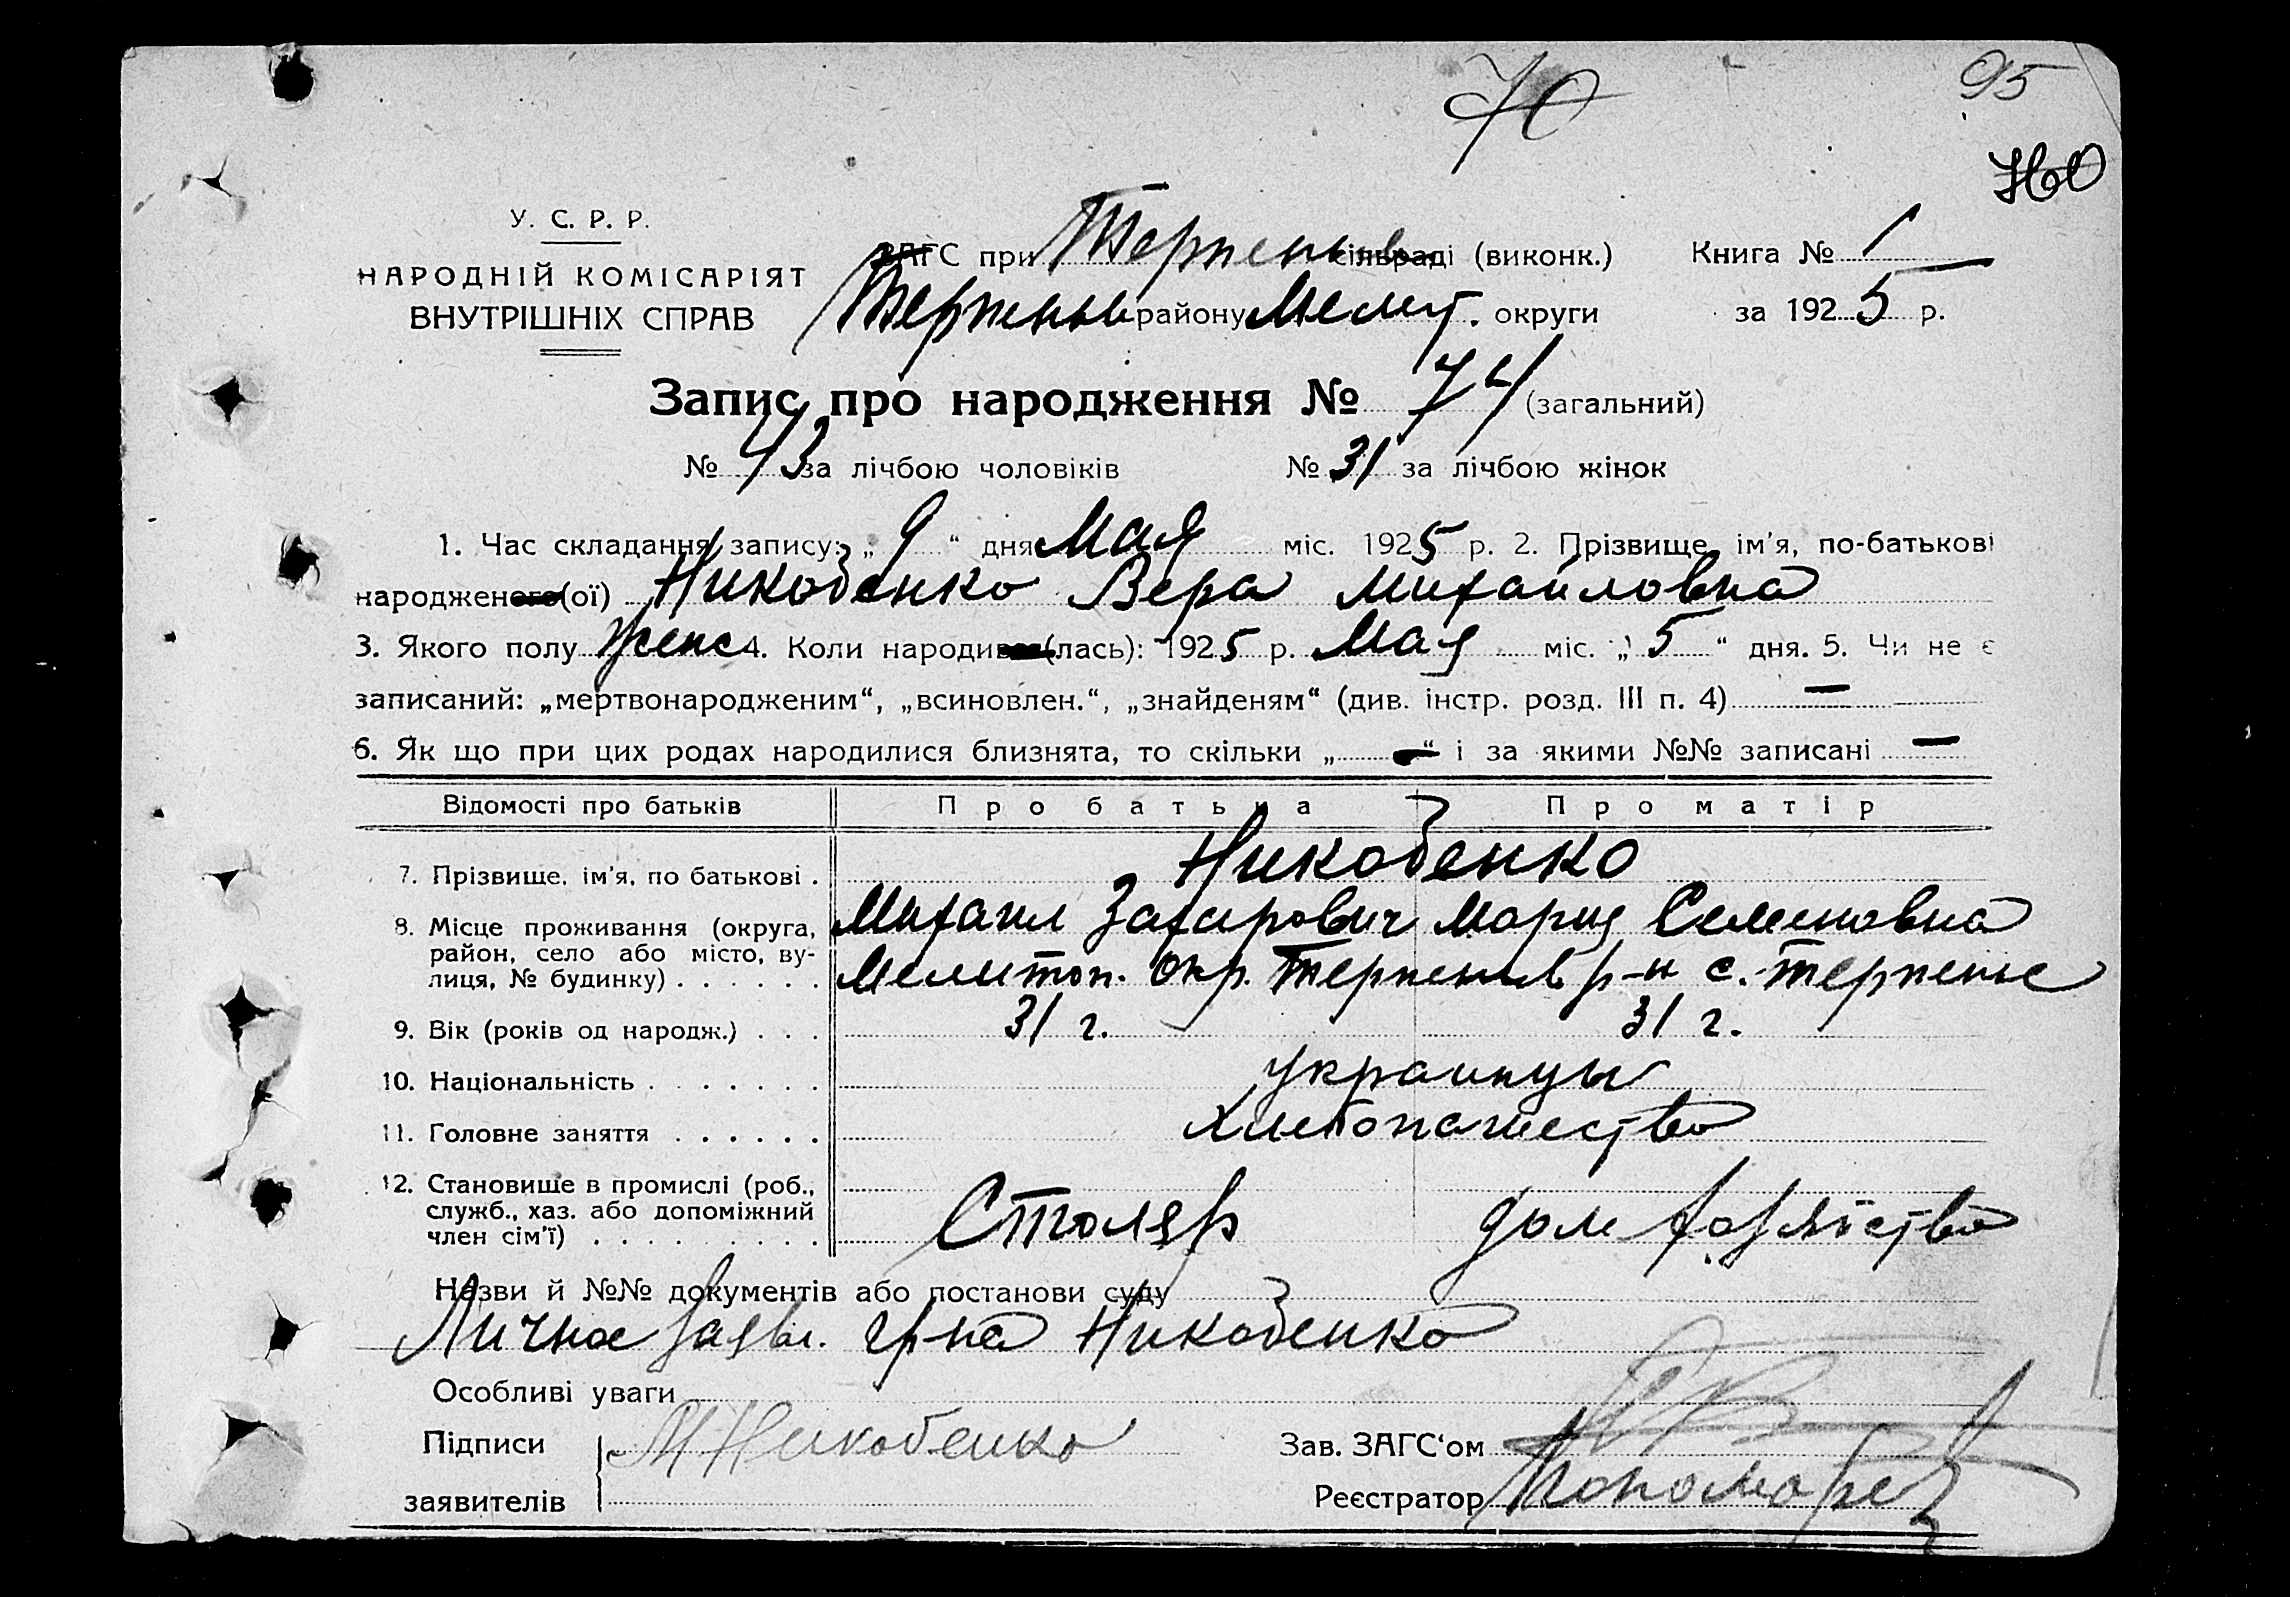 70
95
У. С. Р. Р.
НАРОДНІЙ КОМІСАРІЯТ
ВНУТРІШНІХ СПРАВ
ЗАГС при Терпеньев сільраді (виконк.) Книга № 1
Терпеньев району Мелит. округи за 1925 р.
Запис про народження № 74 (загальний)
№ 43 за лічбою чоловіків № 31 за лічбою жінок
1. Час складання запису: „ 9 “ дня Мая міс. 1925 р. 2. Прізвище, ім'я, по-батькові
народженого(ої) Никобенко Вера Михайловна
3. Якого полу женс 4. Коли народився(лась): 1925 р. Мая міс. „ 5 “ дня. 5. Чи не є
записаний: „мертвонародженим“, „всиновлен.“, „знайденям“ (див. інстр. розд. III п. 4) —
6. Як що при цих родах народилися близнята, то скільки „ — “ і за якими №№ записані —
Відомості про батьків Про батька Про матір
7. Прізвище, ім'я, по батькові . Никобенко
Михаил Захарович Мария Семеновна
8. Місце проживання (округа,
район, село або місто, ву-
лиця, № будинку) . . . . . . Мелитоп. Окр. Терпеньев р-н с. Терпенье
9. Вік (років од народж.) . . . 31 г. 31 г.
10. Національність . . . . . . . украинцы
11. Головне заняття . . . . . . хлебопашество
12. Становище в промислі (роб.,
служб., хаз. або допоміжний
член сім'ї) . . . . . . . . . Столяр дом хозяйство
Назви й №№ документів або постанови суду
Личное заявл. гр-на Никобенко
Особливі уваги
Підписи М Никобенко Зав. ЗАГС‘ом
заявителів Реєстратор Пономарев